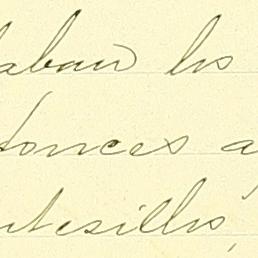 aban los
tonces a
ntesillos,